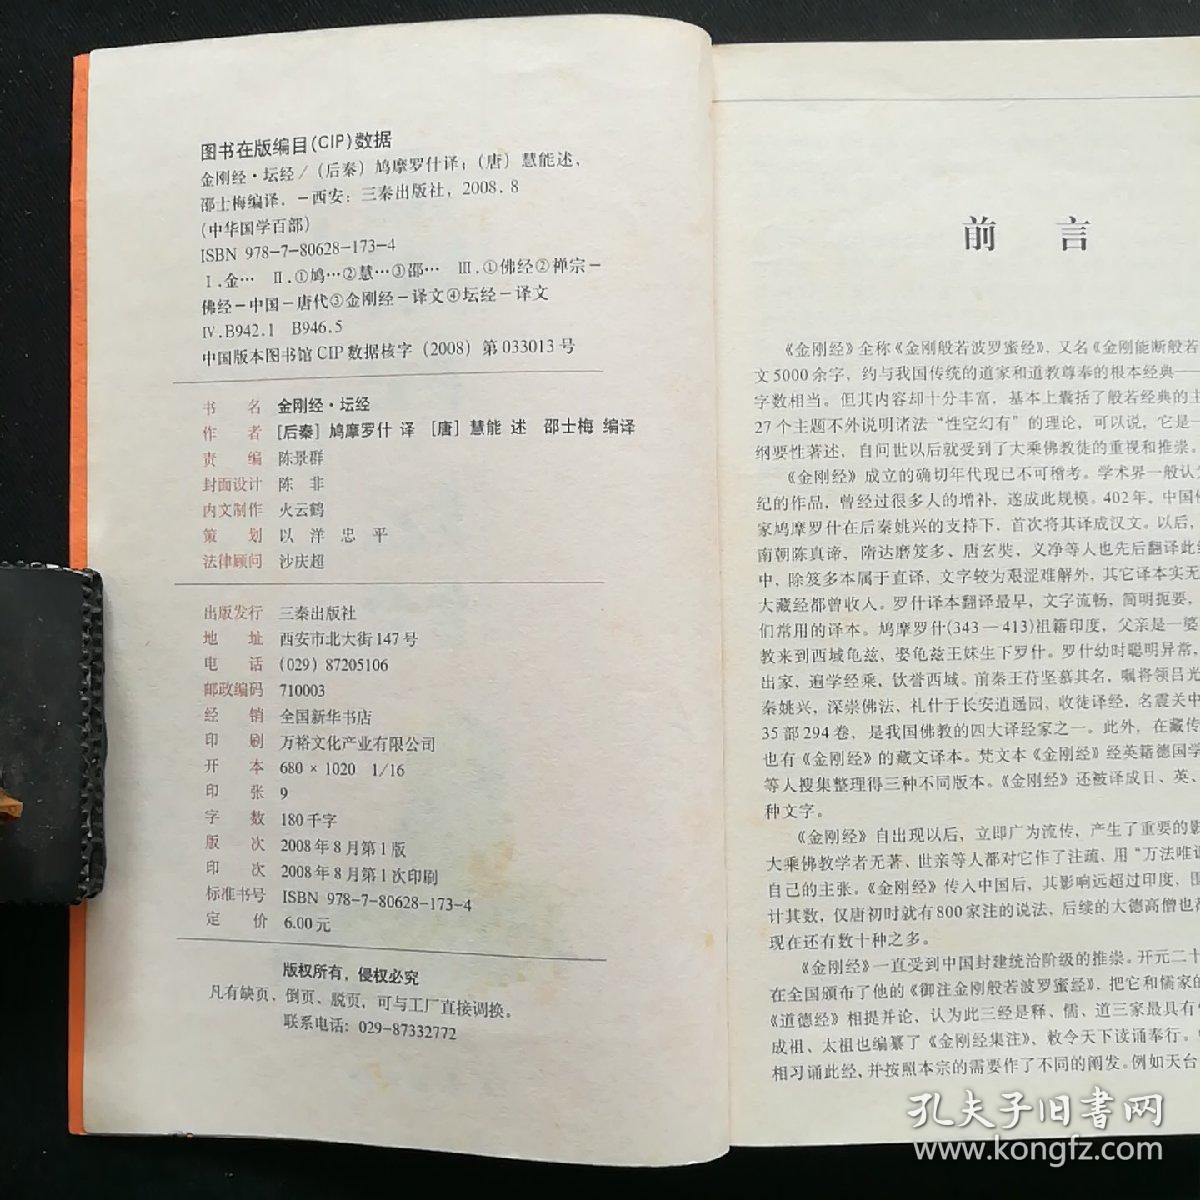 图书在版编目(CIP)数据
金刚经·坛经/(后秦)鸠摩罗什译;(唐)慧能述,
邵士梅编译.－西安:三秦出版社,2008.8
(中华国学百部)
ISBN 978-7-80628-173-4
Ⅰ.金… Ⅱ.①鸠…②慧…③邵… Ⅲ.①佛经②禅宗－
佛经－中国－唐代③金刚经－译文④坛经－译文
Ⅳ.B942.1 B946.5
中国版本图书馆CIP数据核字(2008)第033013号
书名 金刚经·坛经
作者 [后秦]鸠摩罗什 译 [唐]慧能 述 邵士梅 编译
责编 陈景群
封面设计 陈 非
内文制作 火云鹤
策划 以 洋 忠 平
法律顾问 沙庆超
出版发行 三秦出版社
地址 西安市北大街147号
电话 (029)87205106
邮政编码 710003
经销 全国新华书店
印刷 万裕文化产业有限公司
开本 680×1020 1/16
印张 9
字数 180千字
版次 2008年8月第1版
印次 2008年8月第1次印刷
标准书号 ISBN 978-7-80628-173-4
定价 6.00元
版权所有,侵权必究
凡有缺页、倒页、脱页,可与工厂直接调换。
联系电话:029-87332772
前 言
《金刚经》全称《金刚般若波罗蜜经》,又名《金刚能断般若
文5000余字,约与我国传统的道家和道教尊奉的根本经典—
字数相当。但其内容却十分丰富,基本上囊括了般若经典的主
27个主题不外说明诸法“性空幻有”的理论,可以说,它是一
纲要性著述,自问世以后就受到了大乘佛教徒的重视和推崇。
《金刚经》成立的确切年代现已不可稽考。学术界一般认为
纪的作品,曾经过很多人的增补,遂成此规模。402年,中国佛
家鸠摩罗什在后秦姚兴的支持下,首次将其译成汉文。以后,
南朝陈真谛,隋达磨笈多、唐玄奘,义净等人也先后翻译此经
中,除笈多本属于直译,文字较为艰涩难解外,其它译本实无
大藏经都曾收入。罗什译本翻译最早,文字流畅,简明扼要,
们常用的译本。鸠摩罗什(343—413)祖籍印度,父亲是一婆
教来到西域龟兹,娶龟兹王妹生下罗什。罗什幼时聪明异常,
出家,遍学经乘,饮誉西域。前秦王苻坚慕其名,嘱将领吕光
秦姚兴,深崇佛法,礼什于长安逍遥园,收徒译经,名震关中
35部294卷,是我国佛教的四大译经家之一。此外,在藏传
也有《金刚经》的藏文译本。梵文本《金刚经》经英籍德国学
等人搜集整理得三种不同版本。《金刚经》还被译成日、英、
种文字。
《金刚经》自出现以后,立即广为流传,产生了重要的影
大乘佛教学者无著、世亲等人都对它作了注疏,用“万法唯识
自己的主张。《金刚经》传入中国后,其影响远超过印度,围
计其数,仅唐初时就有800家注的说法,后续的大德高僧也
现在还有数十种之多。
《金刚经》一直受到中国封建统治阶级的推崇。开元二十
在全国颁布了他的《御注金刚般若波罗蜜经》,把它和儒家的
《道德经》相提并论,认为此三经是释、儒、道三家最具有
成祖、太祖也编纂了《金刚经集注》,敕令天下读诵奉行。
相习诵此经,并按照本宗的需要作了不同的阐发。例如天台
孔夫子旧书网
www.kongfz.com